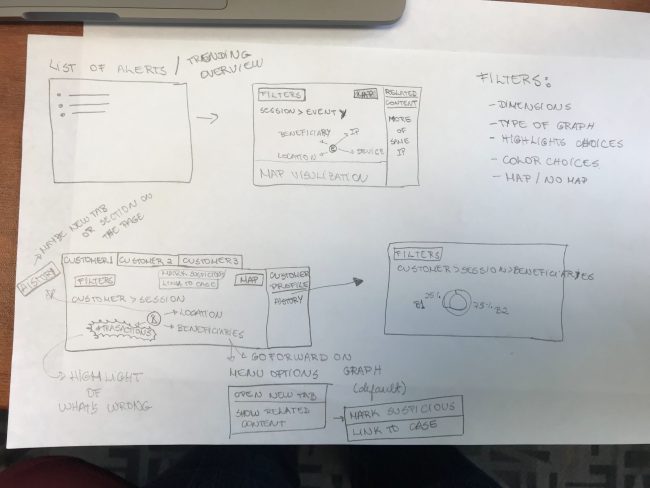 LIST OF ALERTS / TRENDING
OVERVIEW
FILTERS MAP
SESSION > EVENT
BENEFICIARY IP
LOCATION DEVICE
MAP VISULIZATION
RELATED
CONTENT
MORE
OF
SAME
IP
FILTERS:
- DIMENSIONS
- TYPE OF GRAPH
- HIGHLIGHTS CHOICES
- COLOR CHOICES
- MAP / NO MAP
MAYBE NEW TAB
OR SECTION ON
THE PAGE
HISTORY
CUSTOMER 1 CUSTOMER 2 CUSTOMER 3
FILTERS MARK SUSPICIOUS MAP
LINK TO CASE
CUSTOMER > SESSION
LOCATION
BENEFICIARIES
CUSTOMER
PROFILE
HISTORY
HIGHLIGHT
OF
WHAT'S WRONG
FILTERS
CUSTOMER > SESSION > BENEFICIARIES
B1 25% 75% B2
GO FORWARD ON
GRAPH
(default)
MENU OPTIONS
OPEN NEW TAB
SHOW RELATED
CONTENT
MARK SUSPICIOUS
LINK TO CASE